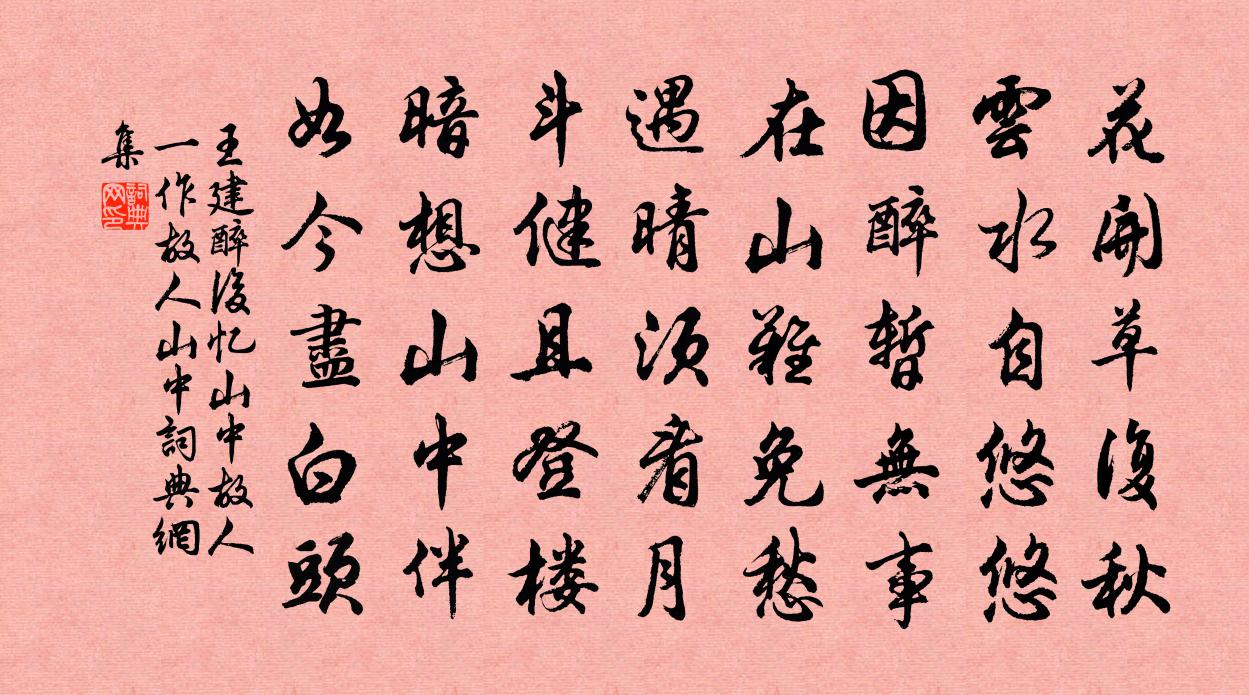 花開草復秋
雲水自悠悠
因醉暫無事
在山難免愁
遇晴須看月
斗健且登楼
暗想山中伴
如今盡白頭
王建醉後忆山中故人
一作故人山中詞典網
集
詞典網印